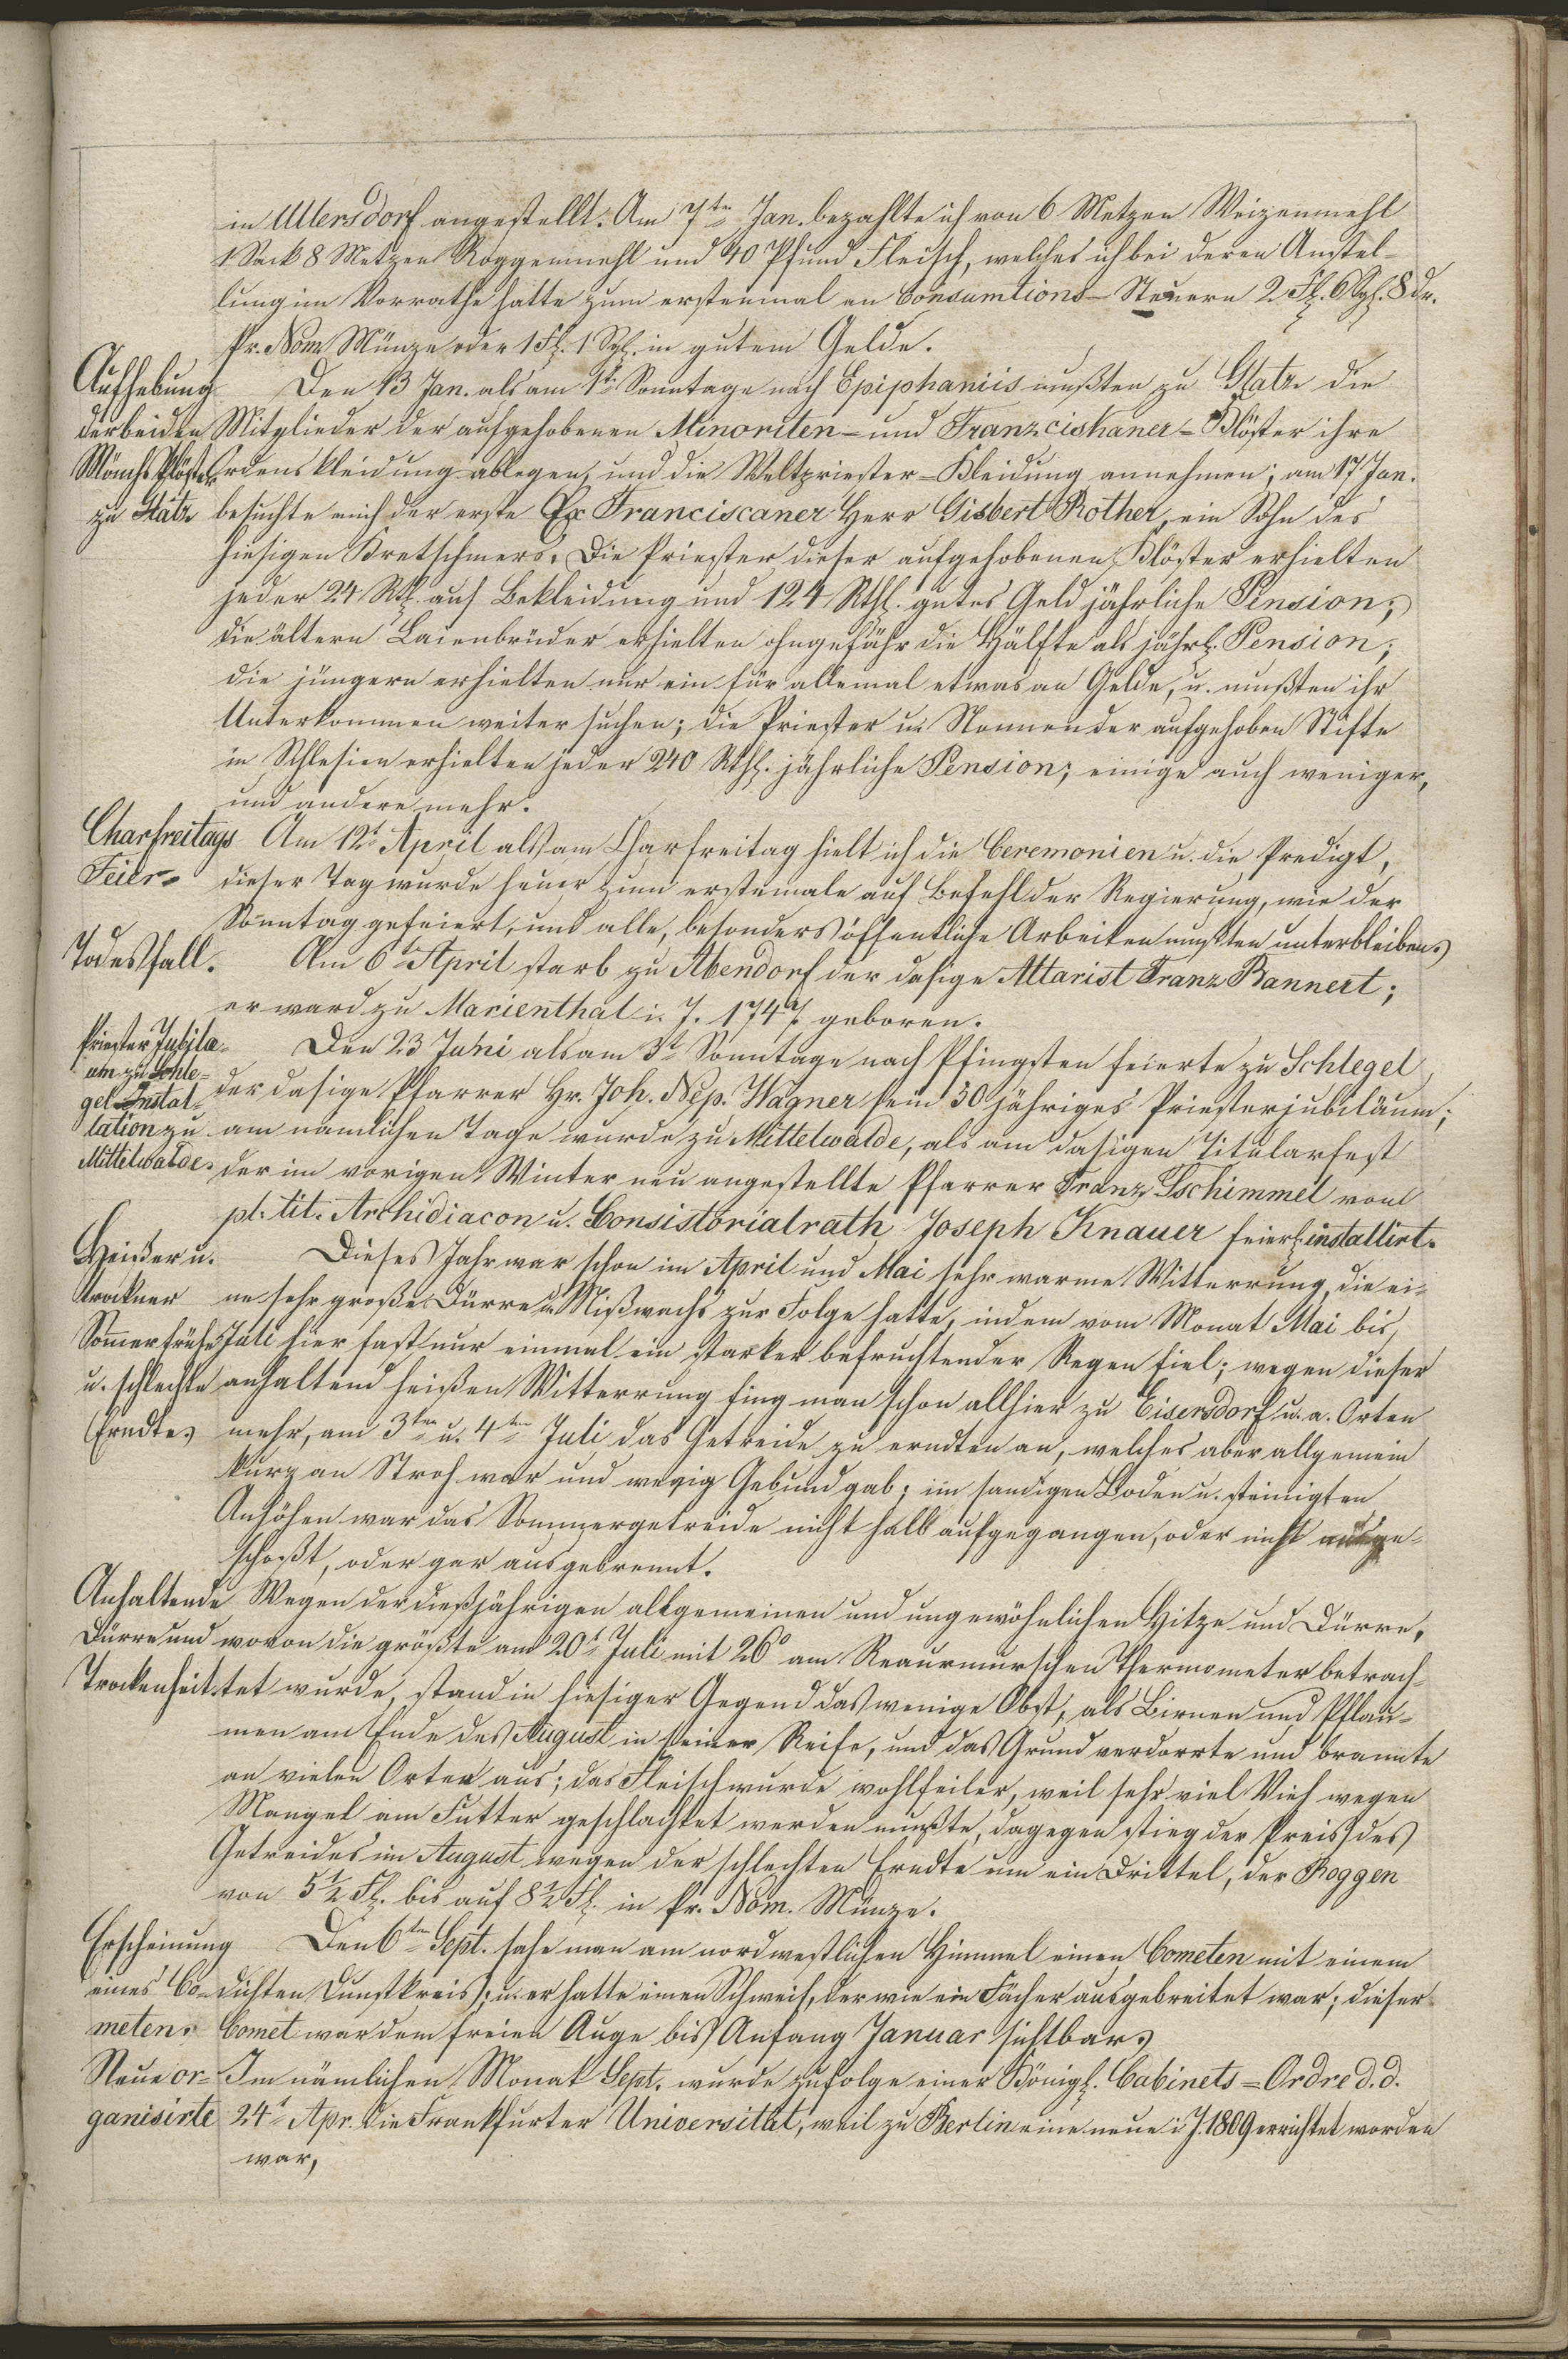 in Ullersdorf angestellt. Am 7ten Jan. bezahlte ich von 6 Metzen Weizenmehl
1 Sack 8 Metzen Roggenmehl und 40 Pfund Fleisch, welches ich bei deren Anstel-
lung im Vorrathe hatte zum erstenmal an Consumtions-Steuern 2 Fl. 6 Sgl. 8 dr.
Pr. Nom Münze oder 1 Fl. 1 Sgl. in gutem Gelde.
Aufhebung
der beiden
Mönchsklöster
zu Glatz
Den 13 Jan. als am 1t Sonntage nach Epiphaniis mußten zu Glatz die
Mitglieder der aufgehobenen Minoriten- und Franzciskaner-Klöster ihre
Ordenskleidung ablegen, und die Weltpriester-Kleidung annehmen; am 17 Jan.
besuchte mich der erste Ex Franciscaner Herr Gisbert Rother, ein Sohn des
hiesigen Kretschmers. Die Priester dieser aufgehobenen Klöster erhielten
jeder 24 Rthl. auf Bekleidung und 124 Rthl. gutes Geld jährliche Pension;
die ältern Laienbrüder erhielten ohngefähr die Hälfte als jährl. Pension;
die jüngern erhielten nur ein für allemal etwas an Gelde, u. mußten ihr
Unterkommen weiter suchen; die Priester u. Nonnen der aufgehoben Stifte
in Schlesien erhielten jeder 240 Rthl. jährliche Pension; einige auch weniger,
und andere mehr.
Charfreitags
Feier.
Am 12t April als am Charfreitag hielt ich die Ceremonien u. die Predigt,
dieser Tag wurde heuer zum erstemale auf Befehl der Regierung, wie der
Sonntag gefeiert, und alle, besonders öffentliche Arbeiten mußten unterbleiben.
Todesfall.
Am 6t April starb zu Abendorf der dasige Altarist Franz Bannert;
er ward zu Marienthal i. J. 174 geboren.
Priester Jubilä-
um zu Schle-
gel Instal-
lation zu
Mittelwalde.
Den 23 Juni als am 3t Sonntage nach Pfingsten feierte zu Schlegel
der dasige Pfarrer Hr. Joh. Nep. Wagner sein 30 jähriges Priesterjubiläum;
am nämlichen Tage wurde zu Mittelwalde, als am dasigen Titularfest
der im vorigen Winter neu angestellte Pfarrer Franz Tschimmel vom
pl. tit. Archidiacon u. Consistorialrath Joseph Knauer feierl. installirt.
Heißer u.
trockner
Sommer frühe
u. schlechte
Erndte.
Dieses Jahr war schon im April und Mai sehr warme Witterrung, die ei-
ne sehr große Dürre u. Mißwachs zur Folge hatte, indem vom Monat Mai bis
Juli hier fast nur einmal ein starker befruchtender Regen fiel; wegen dieser
anhaltend heißen Witterrung fing man schon allhier zu Eisersdorf u. a. Orten
mehr, am 3ten u. 4ten Juli das Getreide zu erndten an, welches aber allgemein
kurz an Stroh war und wenig Gebund gab; im sandigen Boden u. steinigten
Anhöhen war das Sommergetreide nicht halb aufgegangen, oder nicht ausge-
schoßt, oder gar ausgebrennt.
Anhaltende
Dürre und
Trockenheit.
Wegen der dießjährigen allgemeinen und ungewöhnlichen Hitze und Dürre,
wovon die größte am 20t Juli mit 26° am Reaurmurschen Thermometer betrach-
tet wurde, stand in hiesiger Gegend das wenige Obst, als Birnen und Pflau-
men am Ende des August in seiner Reife, und das Grund verdorrte und brannte
an vielen Orten aus; das Fleisch wurde wohlfeiler, weil sehr viel Vieh wegen
Mangel am Futter geschlachtet werden mußte, dagegen stieg der Preis des
Getreides im August wegen der schlechten Erndte um ein Drittel, der Roggen
von 5 1/2 Fl. bis auf 8 1/2 Fl. in Pr. Nom. Münze.
Erscheinung
eines Co-
meten.
Den 6ten Sept. sahe man am nordwestlichen Himmel einen Cometen mit einem
dichten Dunstkreis; u. er hatte einen Schweif, der wie ein Fächer ausgebreitet war; dieser
Comet war dem freien Auge bis Anfang Januar sichtbar.
Neue or-
ganisirte
Im nämlichen Monat Sept. wurde zufolge einer Königl. Cabinets-Ordre d. d.
24t Apr. die Frankfurter Universität, weil zu Berlin eine neue i. J. 1809 errichtet worden
war,